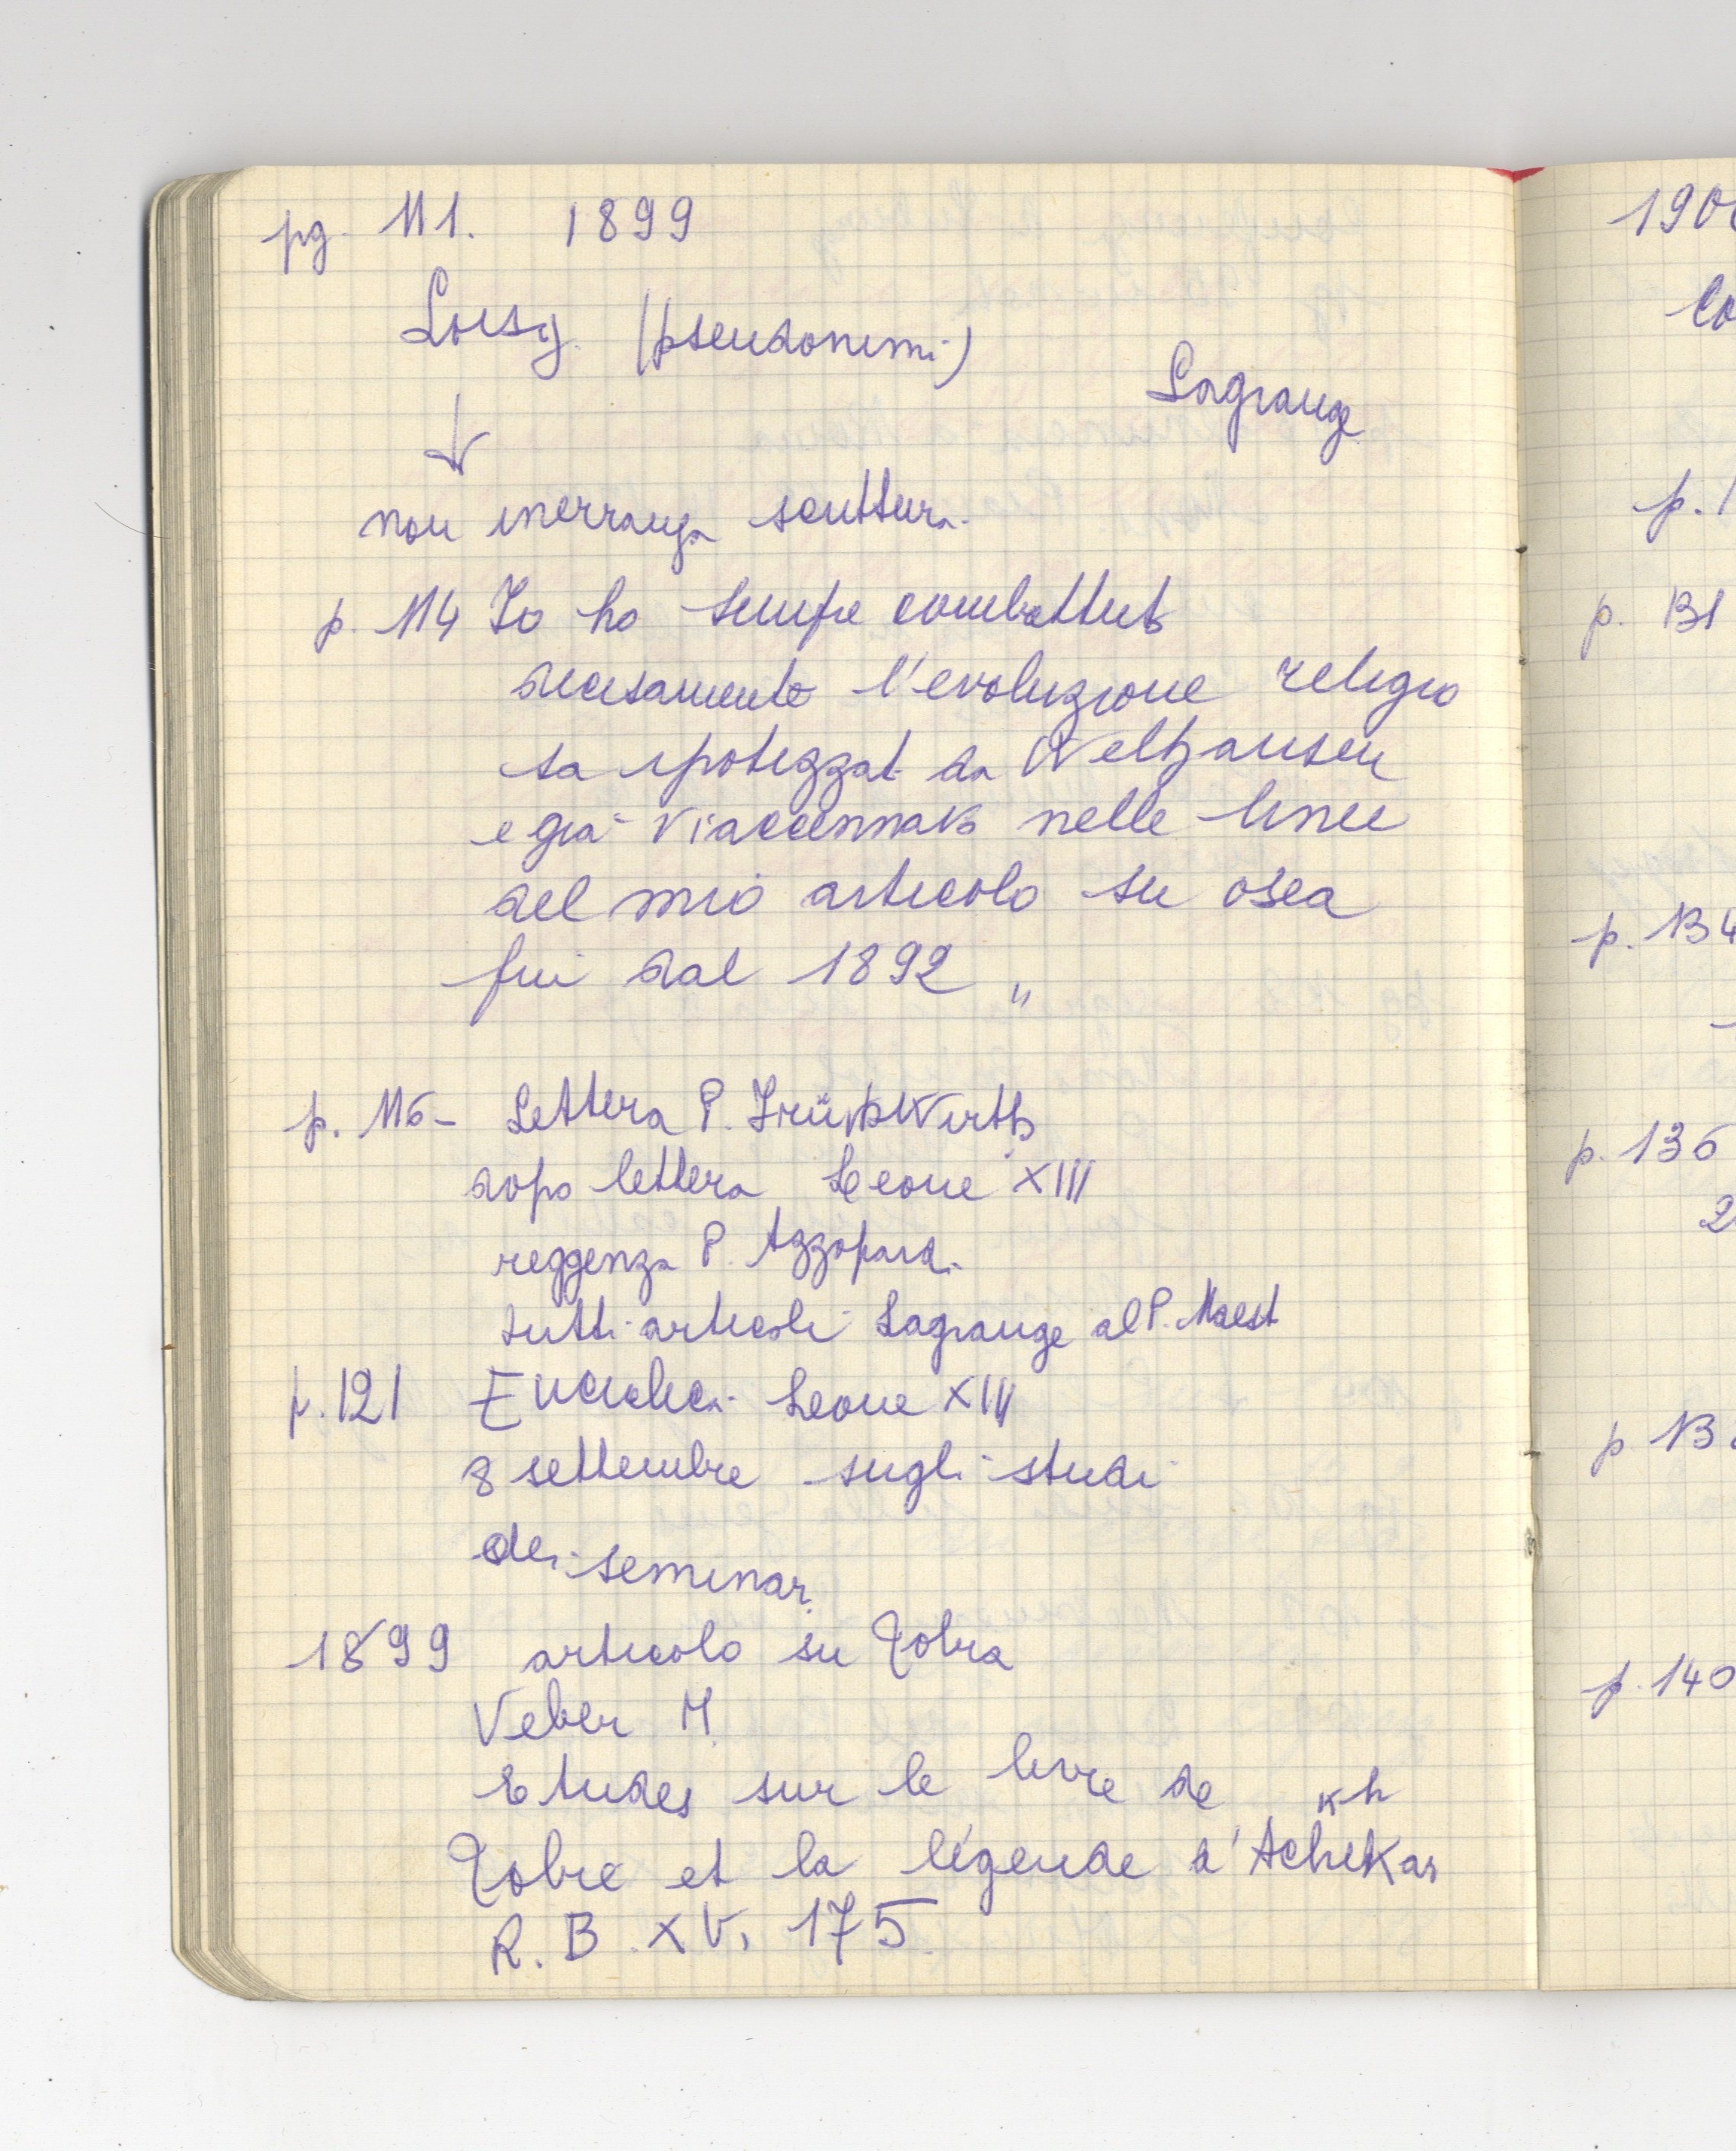 pg. 111. 1899
Loisy. (pseudonimi)
Lagrange
↓
non inerranza scrittura.
p. 114 Io ho sempre combattuto
decisamente l'evoluzione religio
sa ipotizzat da Welhausen
e già vi accennavo nelle linee
del mio articolo su osea
fin dal 1892 "
p. 116- Lettera P. FrüWirth
dopo lettera Leone XIII
reggenza P. Azzopardi
tutti articoli Lagrange al P. Maest
p. 121 Enciclica Leone XIII
8 settembre sugli studi
dei seminari
1899 articolo su Tobia
Veber M.
Etudes sur le livre de kh
Tobie et la légende d'Achikar
R. B. XV, 175.
190
Co
p. 1
p. 131
p. 134
p. 136
2
p 13
p. 140